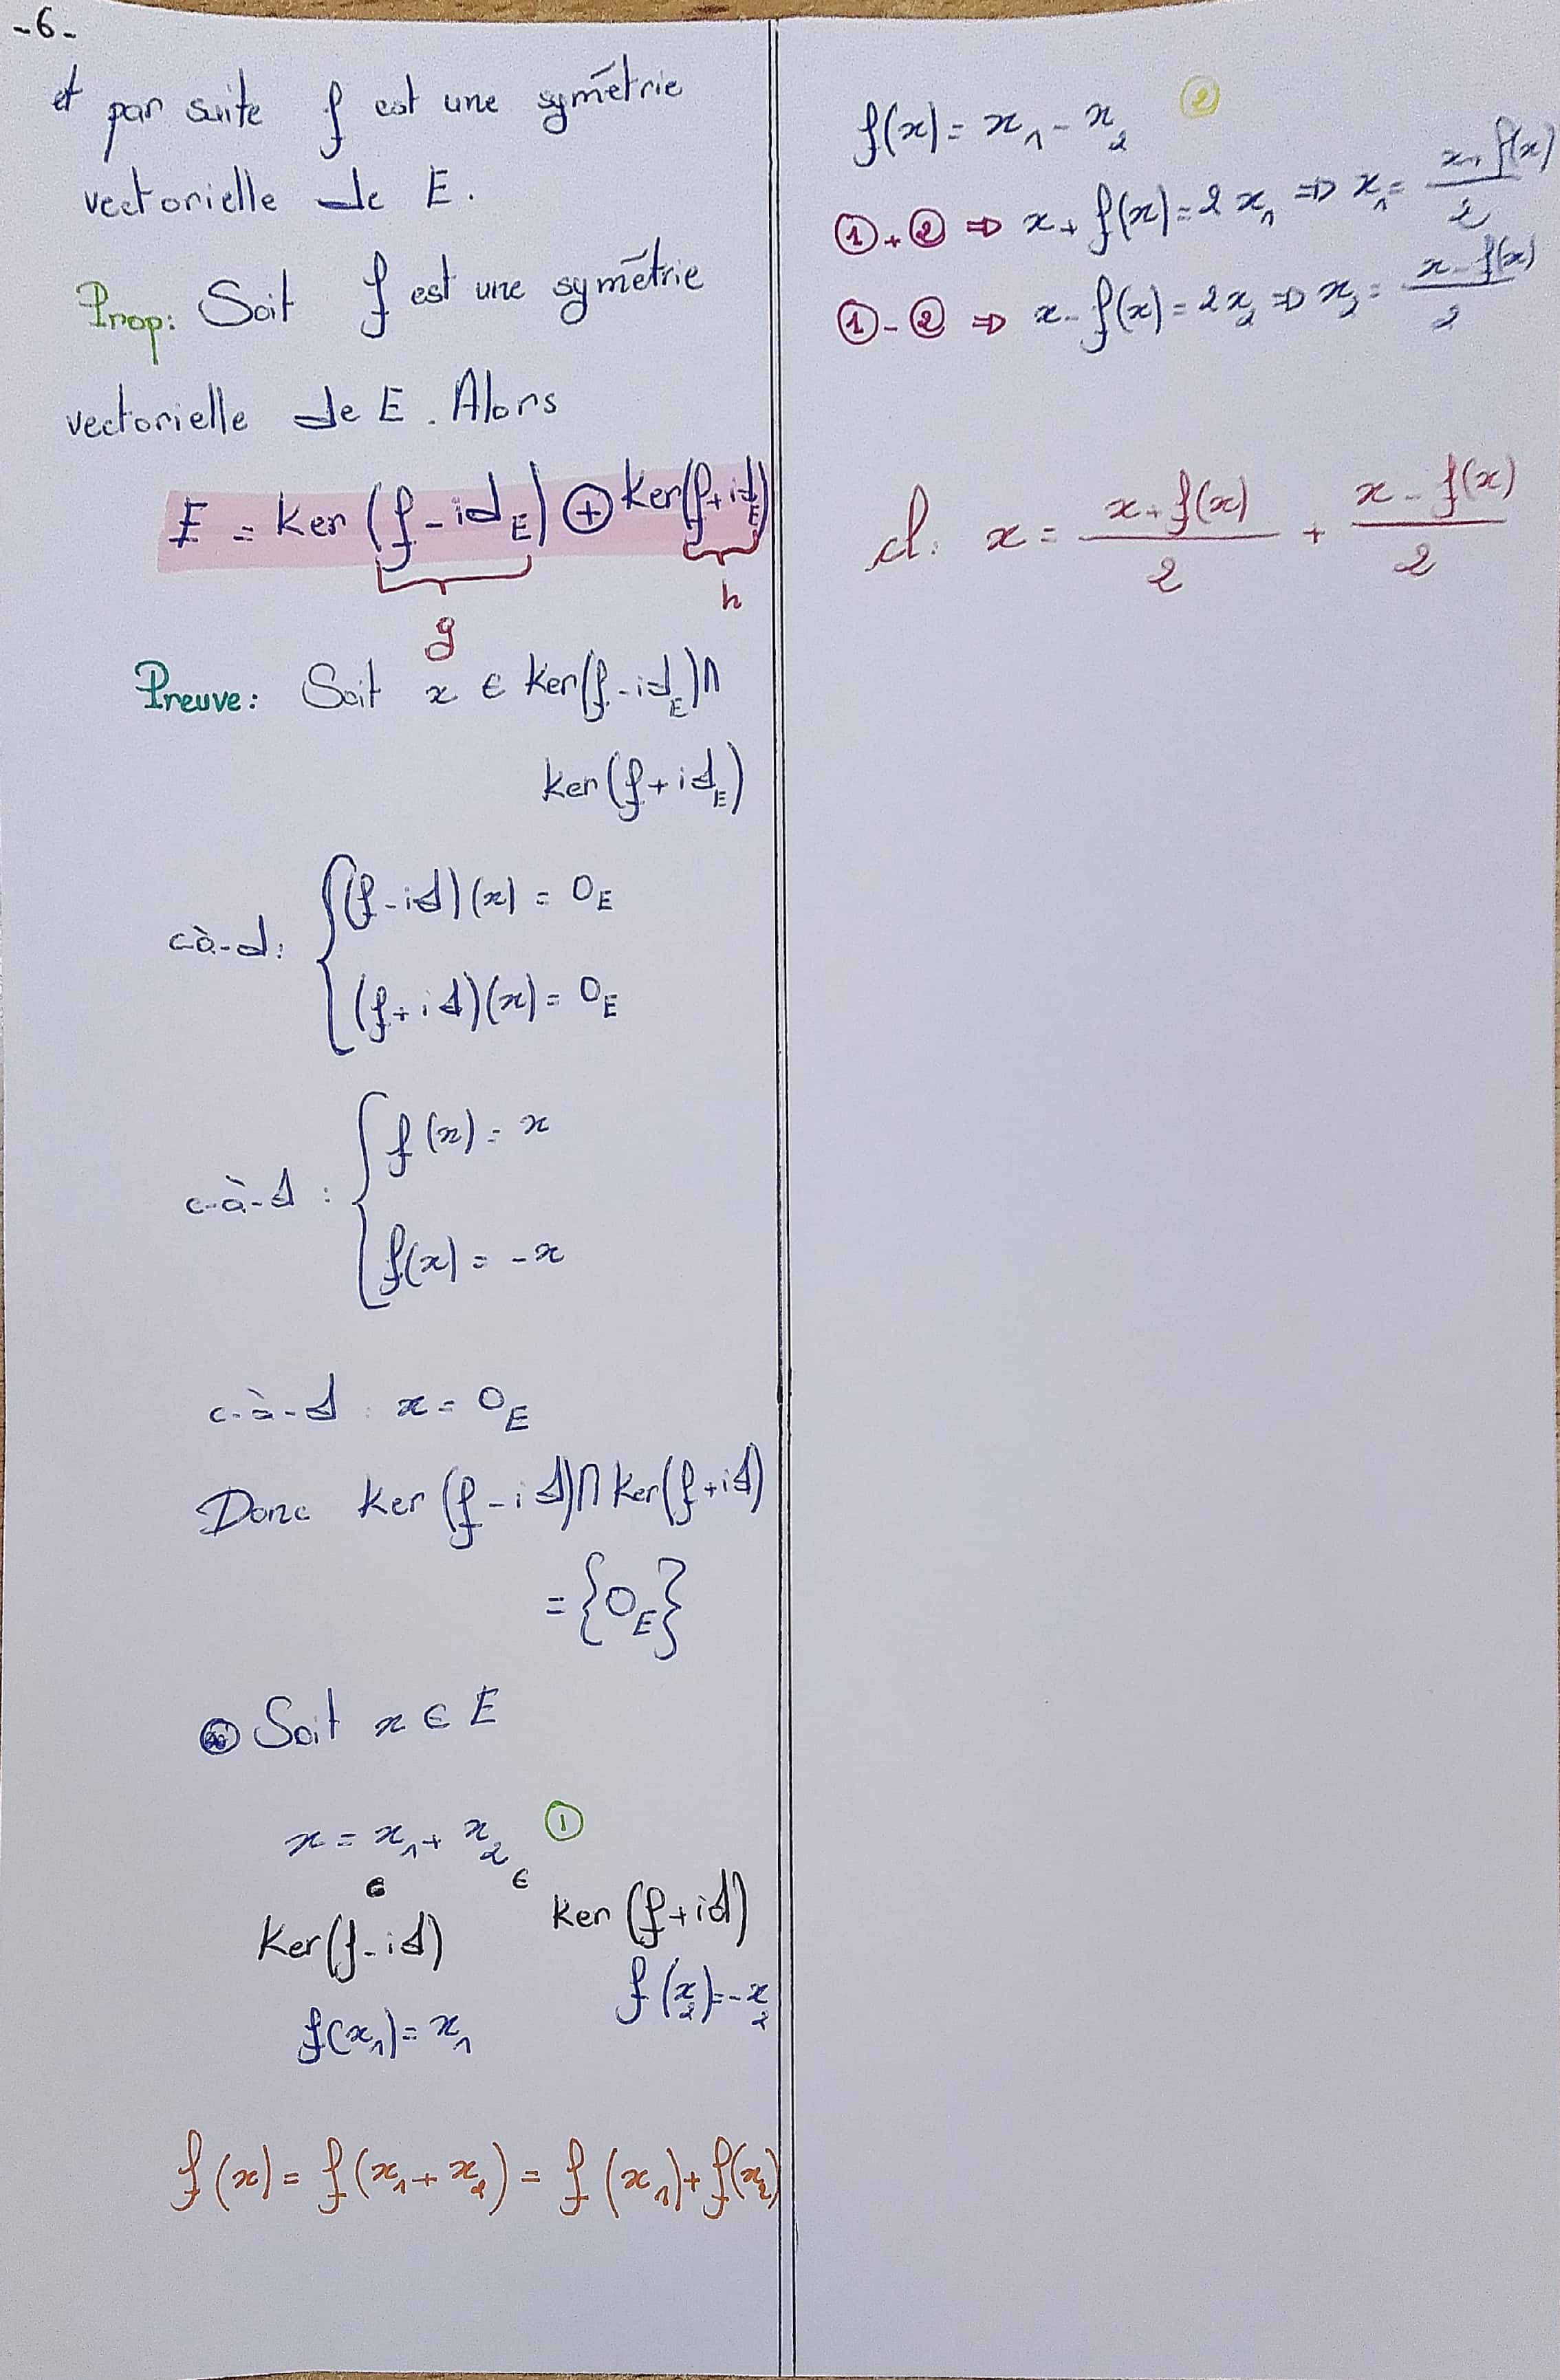 -6-
et par suite f est une symétrie
vectorielle de E.
Prop: Soit f est une symétrie
vectorielle de E. Alors
E = Ker (f - id_E) ⊕ Ker(f + id_E)
g
h
Preuve: Soit x ∈ Ker(f - id_E) ∩
Ker (f + id_E)
cà-d: { (f - id)(x) = 0_E
(f + id)(x) = 0_E
c-à-d : { f(x) = x
f(x) = -x
c-à-d : x = 0_E
Donc Ker (f - id) ∩ Ker(f + id)
= {0_E}
Soit x ∈ E
x = x_1 + x_2 ①
∈ ∈
Ker(f - id) Ker (f + id)
f(x_1) = x_1 f(x_2) = -x_2
f(x) = f(x_1 + x_2) = f(x_1) + f(x_2)
f(x) = x_1 - x_2 ②
① + ② ⇒ x + f(x) = 2 x_1 ⇒ x_1 = (x + f(x))/2
① - ② ⇒ x - f(x) = 2 x_2 ⇒ x_2 = (x - f(x))/2
x = (x + f(x))/2 + (x - f(x))/2